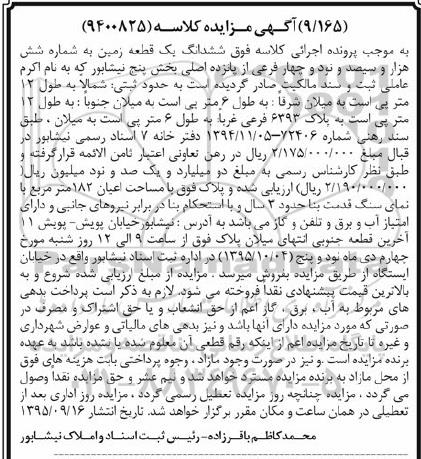 (۹/۱۶۵) آگهی مزایده کلاسه (۹۴۰۰۸۲۵)
به موجب پرونده اجرائی کلاسه فوق ششدانگ یک قطعه زمین به شماره شش
هزار و سیصد و نود و چهار فرعی از یازده اصلی بخش پنج نیشابور که به نام اکرم
عاملی ثبت و سند مالکیت صادر گردیده است به حدود ثبتی: شمالا به طول ۱۲
متر پی است به میلان شرقا : به طول ۶ متر پی است به میلان جنوبا : به طول ۱۲
متر پی است به پلاک ۶۳۹۲ فرعی غربا: به طول ۶ متر پی است به میلان ، طبق
سند رهنی شماره ۷۲۴۰۶-۱۳۹۴/۱۱/۰۵ دفتر خانه ۷ اسناد رسمی نیشابور در
قبال مبلغ ۲/۱۷۵/۰۰۰/۰۰۰ ریال در رهن تعاونی اعتبار ثامن الائمه قرارگرفته و
طبق نظر کارشناس رسمی به مبلغ دو میلیارد و یک صد و نود میلیون ریال(
۲/۱۹۰/۰۰۰/۰۰۰ ریال) ارزیابی شده و پلاک فوق با مساحت اعیان ۱۸۲متر مربع با
نمای سنگ قدمت بنا حدود ۳ سال و با استحکام بنا در برابر نیروهای جانبی و دارای
امتیاز آب و برق و تلفن و گاز می باشد به آدرس : نیشابورخیابان پویش- پویش ۱۱
آخرین قطعه جنوبی انتهای میلان پلاک فوق از ساعت ۹ الی ۱۲ روز شنبه مورخ
چهارم دی ماه نود و پنج (۱۳۹۵/۱۰/۰۴) در اداره ثبت اسناد نیشابور واقع در خیابان
ایستگاه از طریق مزایده بفروش میرسد . مزایده از مبلغ ارزیابی شده شروع و به
بالاترین قیمت پیشنهادی نقدا فروخته می شود. لازم به ذکر است پرداخت بدهی
های مربوط به آب، برق، گاز اعم از حق انشعاب و یا حق اشتراک و مصرف در
صورتی که مورد مزایده دارای آنها باشد و نیز بدهی های مالیاتی و عوارض شهرداری
و غیره تا تاریخ مزایده اعم از اینکه رقم قطعی آن معلوم شده یا نشده باشد به عهده
برنده مزایده است .و نیز در صورت وجود مازاد ، وجوه پرداختی بابت هزینه های فوق
از محل مازاد به برنده مزایده مسترد خواهد شد و نیم عشر و حق مزایده نقدا وصول
می گردد . مزایده چنانچه روز مزایده تعطیل رسمی گردد ، مزایده روز اداری بعد از
تعطیلی در همان ساعت و مکان مقرر برگزار خواهد شد. تاریخ انتشار ۱۳۹۵/۰۹/۱۶
محمدکاظم باقرزاده-رئیس ثبت اسناد و املاک نیشابور